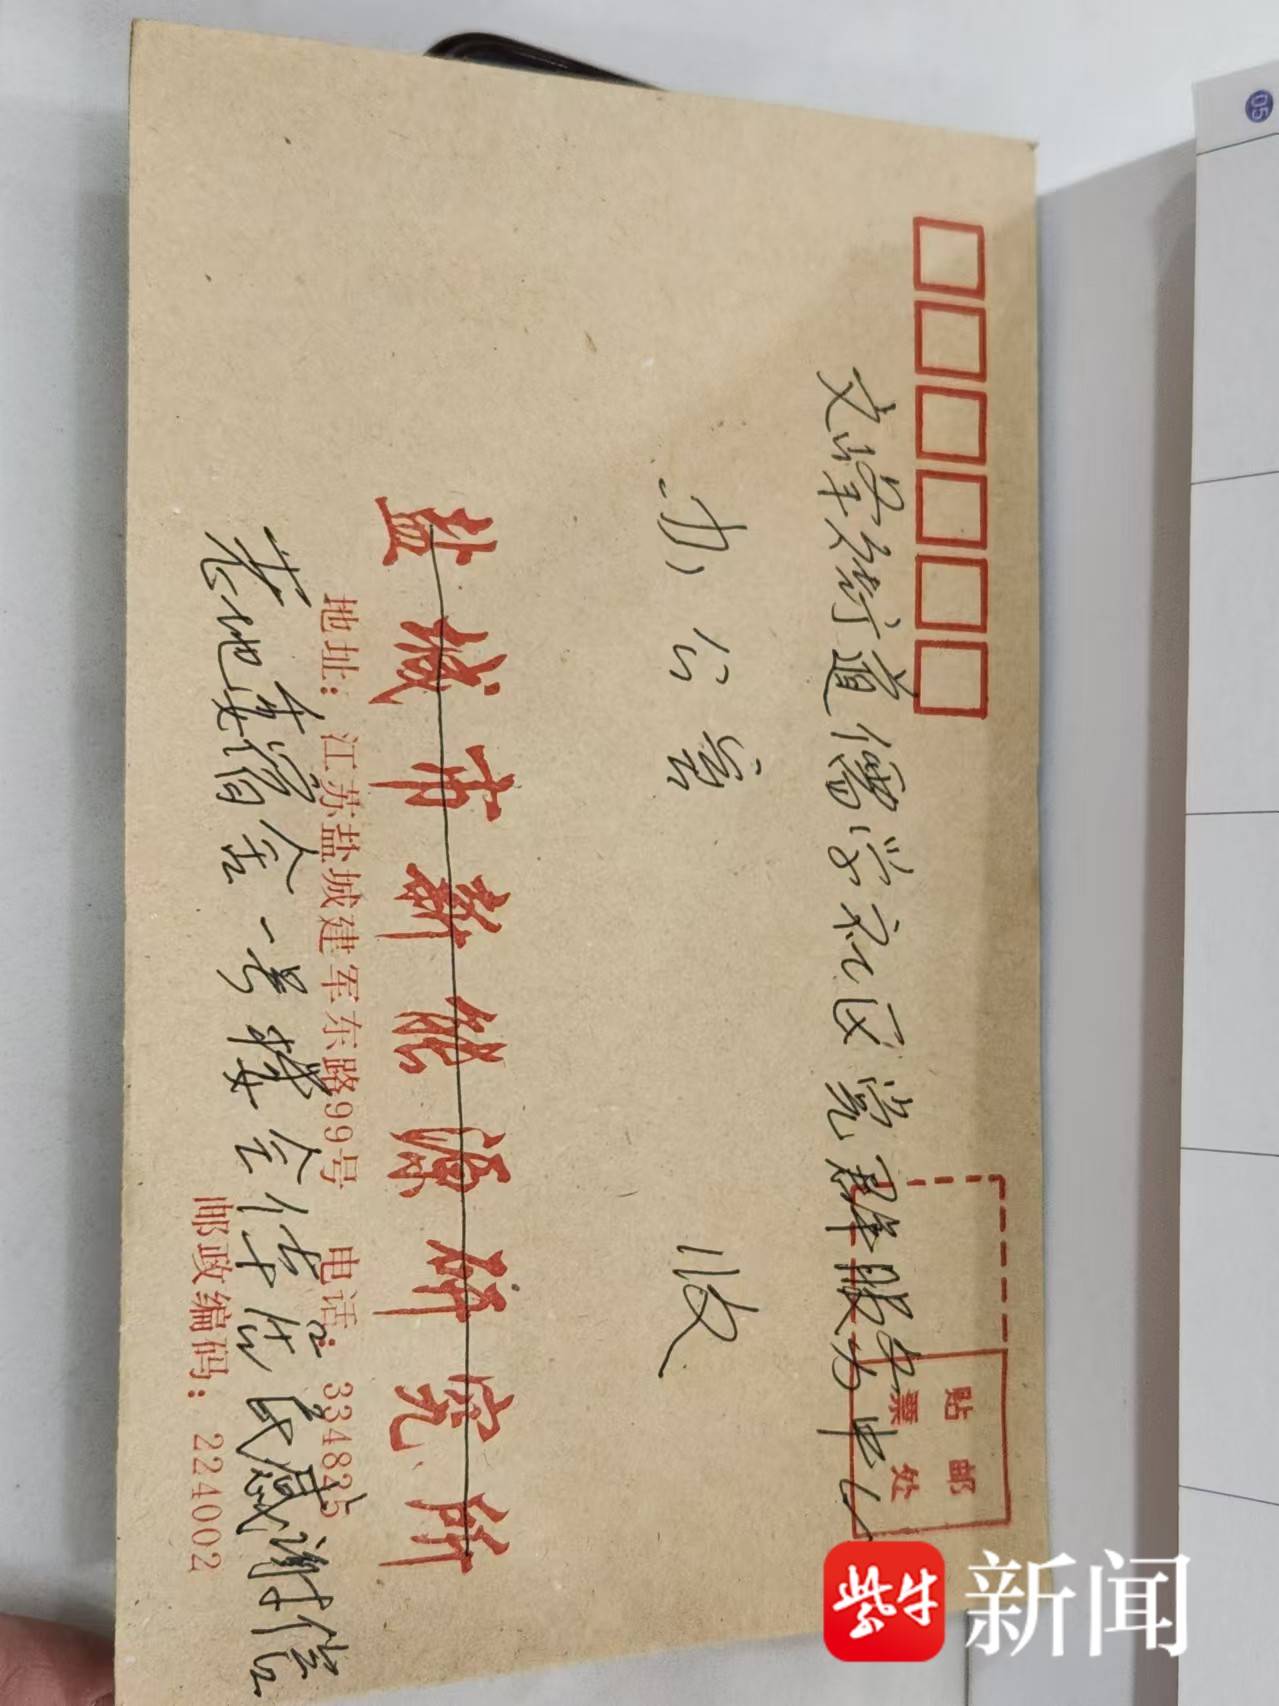 文峰街道儒学社区党群服务中心
贴邮
票处
办公室 收
盐城市新能源研究所
地址：江苏盐城建军东路99号 电话：334825
一号楼全体居民感谢信
邮政编码：224002
05
紫牛新闻